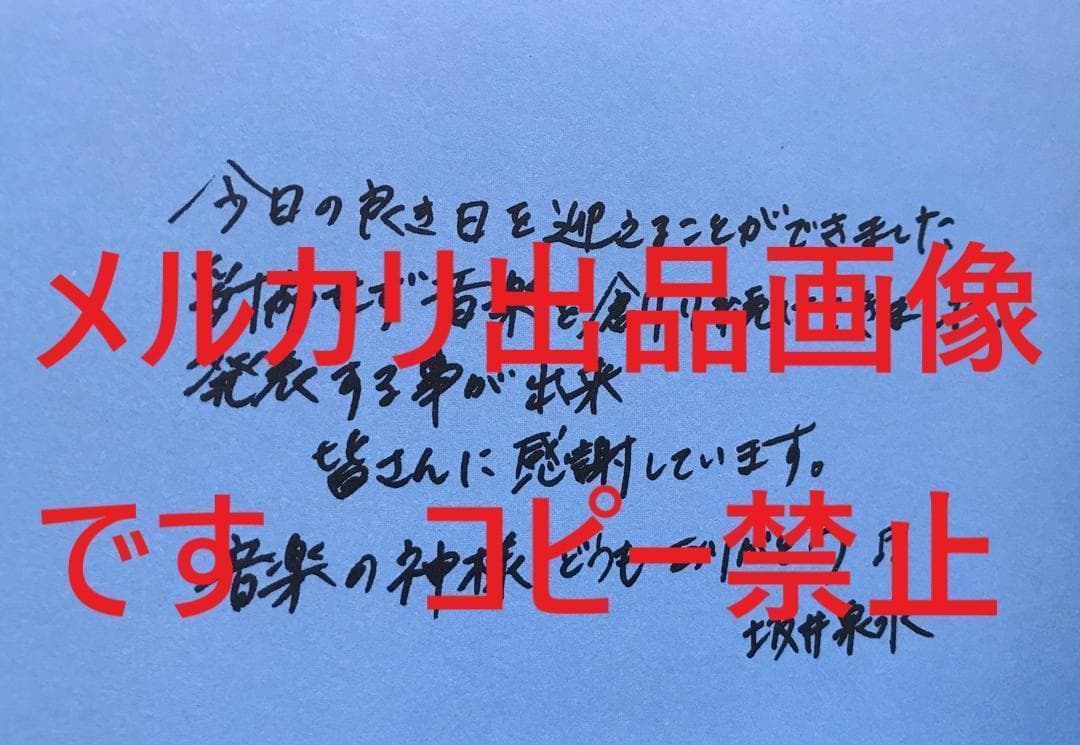 今日の良き日を迎えることができました
メルカリ出品画像
せず音楽を創り
発表する事が出来
皆さんに感謝しています。
です コピー禁止
音楽の神様どうもありがとう
坂井泉水